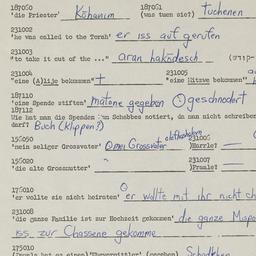 187060 187061
'die Priester' Kohanim (was tuen sie?) tuchenen
231002
'he was called to the Torah' er iss auf geruten
231003
"to take it out of the ..." aran hakodesch
231004 231005
"eine (A)lije bekommen" + "eine Mitzwe bekommen"
187110
'eine Spende stiften' matone gegeben geschnodert
187112
Wie hat man die Spenden am Schabbes notiert, da man nicht schreiben
darf? Buch (klippen?)
156050 231006
'mein seliger Grossvater' Omei Grossvater )Harrle?
156020 231007
'die alte Grossmutter' )Fraale?
176010
'er wollte sie nicht heiraten' er wollte mit ihr nicht
231008
'die ganze Familie ist zur Hochzeit gekommen' die ganze
iss zur Chassene gekomme
175010